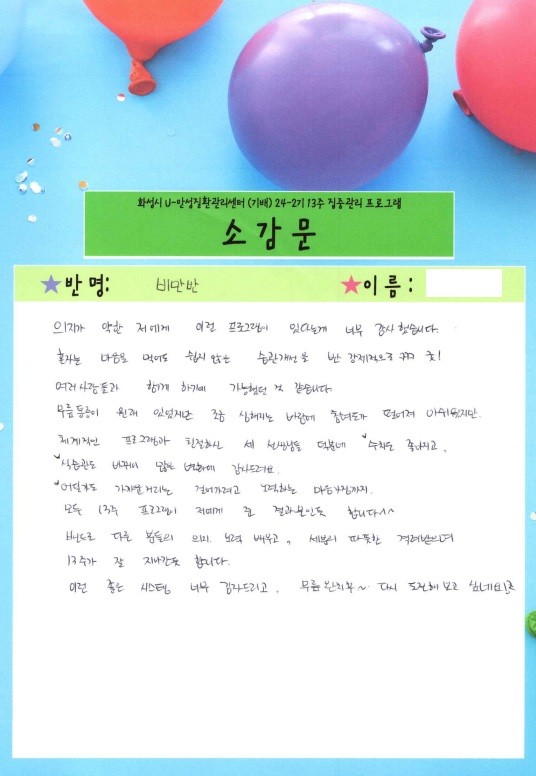 화성시 U-만성질환관리센터 (기배) 24-2기 13주 집중관리 프로그램
소감문
반 명: 비만반
이 름 :
의지가 약한 저에게 이런 프로그램이 있다는게 너무 감사했습니다.
혼자는 마음을 먹어도 쉽지 않은 습관개선을 반 강제적으로 꾹 꾹!
여러사람들과 함께 하기에 가능했던 것 같습니다.
무릎통증이 원래 있었지만 조금 심해지는 바람에 참여도가 떨어져 아쉬웠지만.
체계적인 프로그램과 친절하신 세 선생님들 덕분에 수치도 좋아지고,
식습관도 바뀌어 많은 변화에 감사드려요.
어딜가도 가까운거리는 걸어가려고 노력하는 마음가짐까지.
모두 13주 프로그램이 저에게 준 결과물인듯 합니다^^
다른 분들의 의지. 노력 배우고, 세분의 따뜻한 격려받으며
13주가 잘 지나간듯 합니다.
이런 좋은 시스템 너무 감사드리고, 무릎 완치후~ 다시 도전해 보고 싶네요!